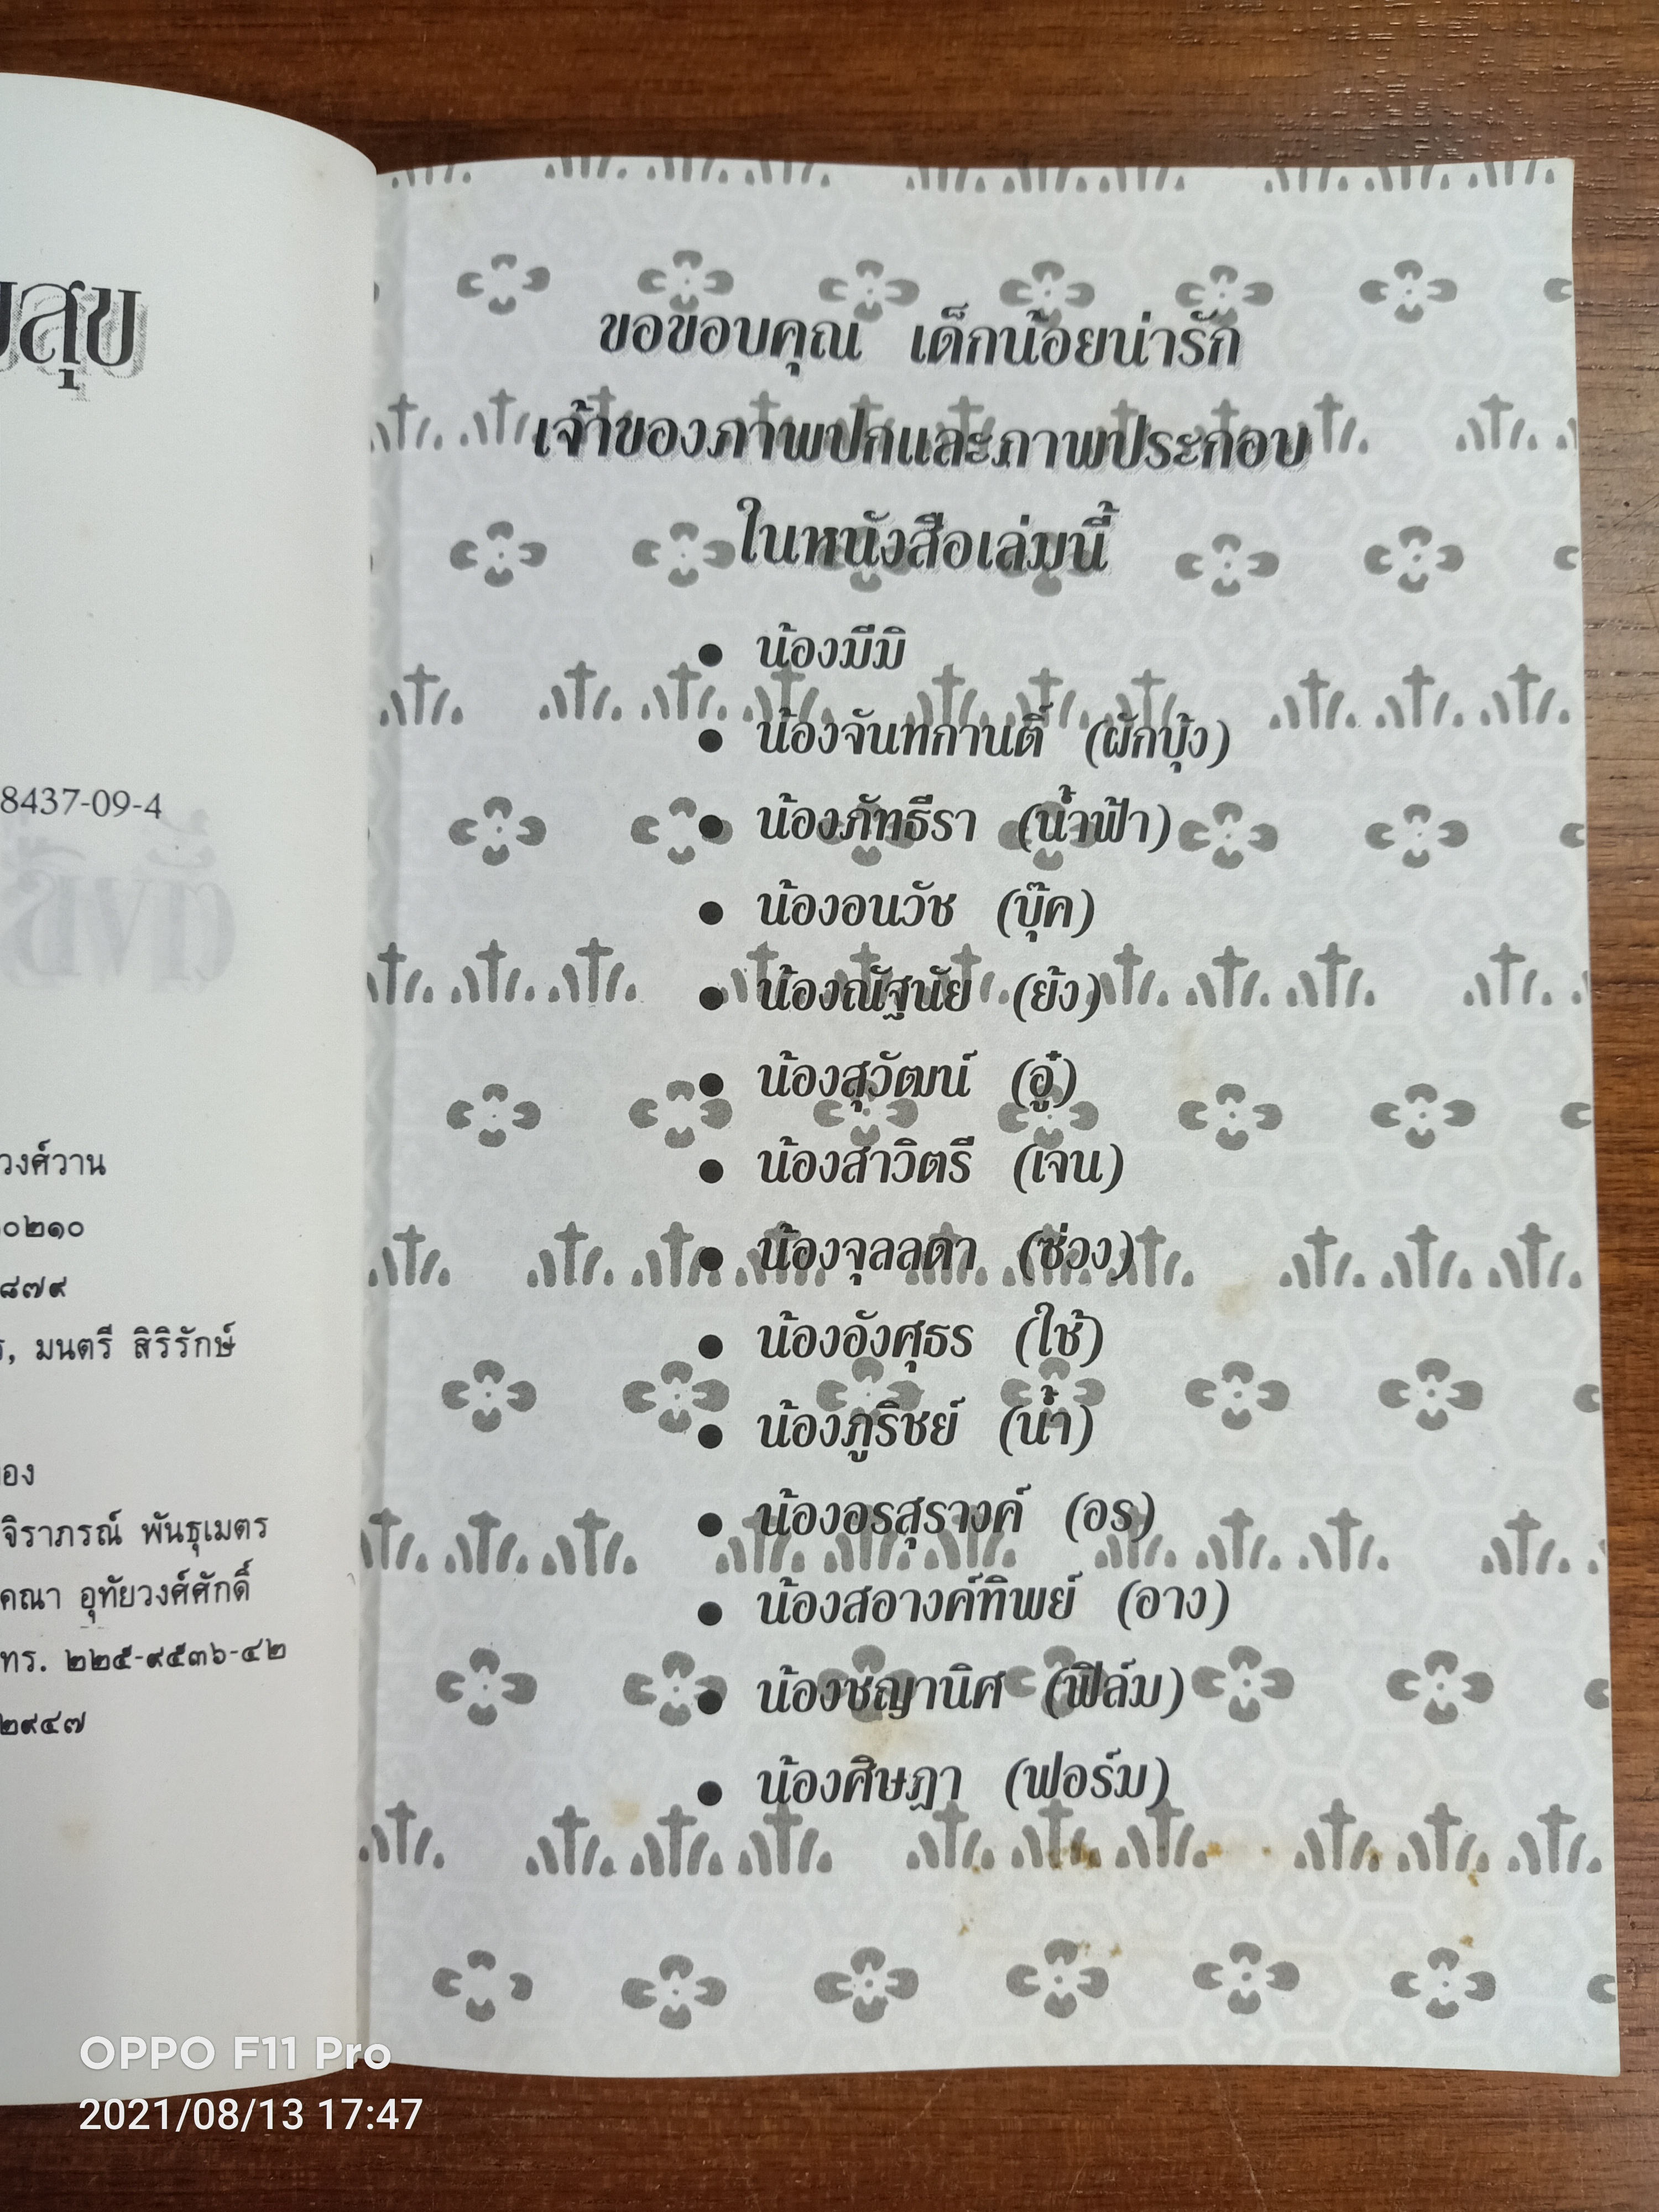 ยสุข
8437-09-4
วงศ์วาน
๐๒๑๐
๘๗๙
ร, มนตรี สิริรักษ์
อง
จิราภรณ์ พันธุเมตร
คณา อุทัยวงศ์ศักดิ์
ทร. ๒๒๕-๙๕๓๖-๔๒
๒๙๔๗
ขอขอบคุณ เด็กน้อยน่ารัก
เจ้าของภาพปกและภาพประกอบ
ในหนังสือเล่มนี้
● น้องมีมิ
● น้องจันทกานติ์ (ผักบุ้ง)
● น้องภัทธีรา (น้ำฟ้า)
● น้องอนวัช (บุ๊ค)
● น้องณัฐนัย (ย้ง)
● น้องสุวัฒน์ (อู๋)
● น้องสาวิตรี (เจน)
● น้องจุลลดา (ซ่วง)
● น้องอังศุธร (ใช้)
● น้องภูริชย์ (น้ำ)
● น้องอรสุรางค์ (อร)
● น้องสอางค์ทิพย์ (อาง)
● น้องชญานิศ (ฟิล์ม)
● น้องศิษฎา (ฟอร์ม)
OPPO F11 Pro
2021/08/13 17:47